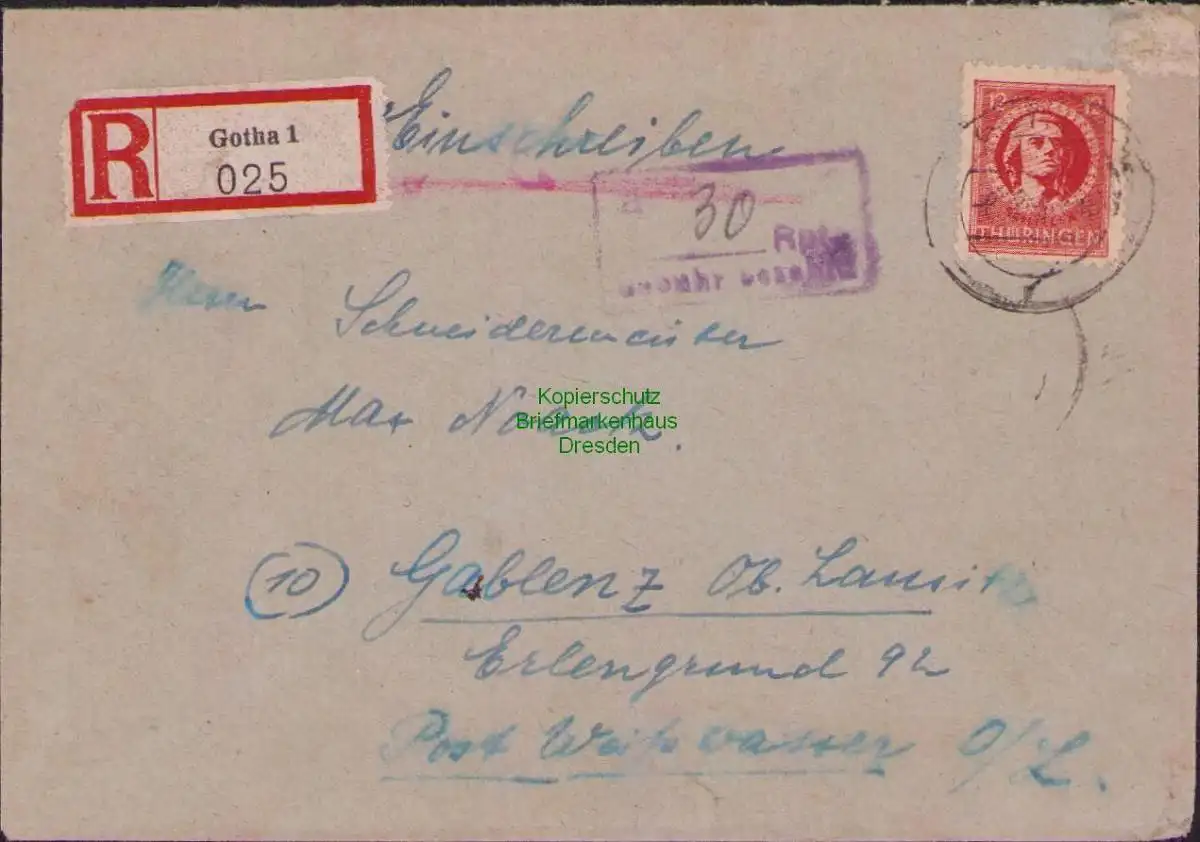 R Gotha 1
025
Einschreiben
12 12
THÜRINGEN
30 Rpf
Herrn Schneidermeister
Max
Kopierschutz
Briefmarkenhaus
Dresden
(10) Gablenz Ob. Lausitz
Erlengrund 92
Post Weißwasser O/L.